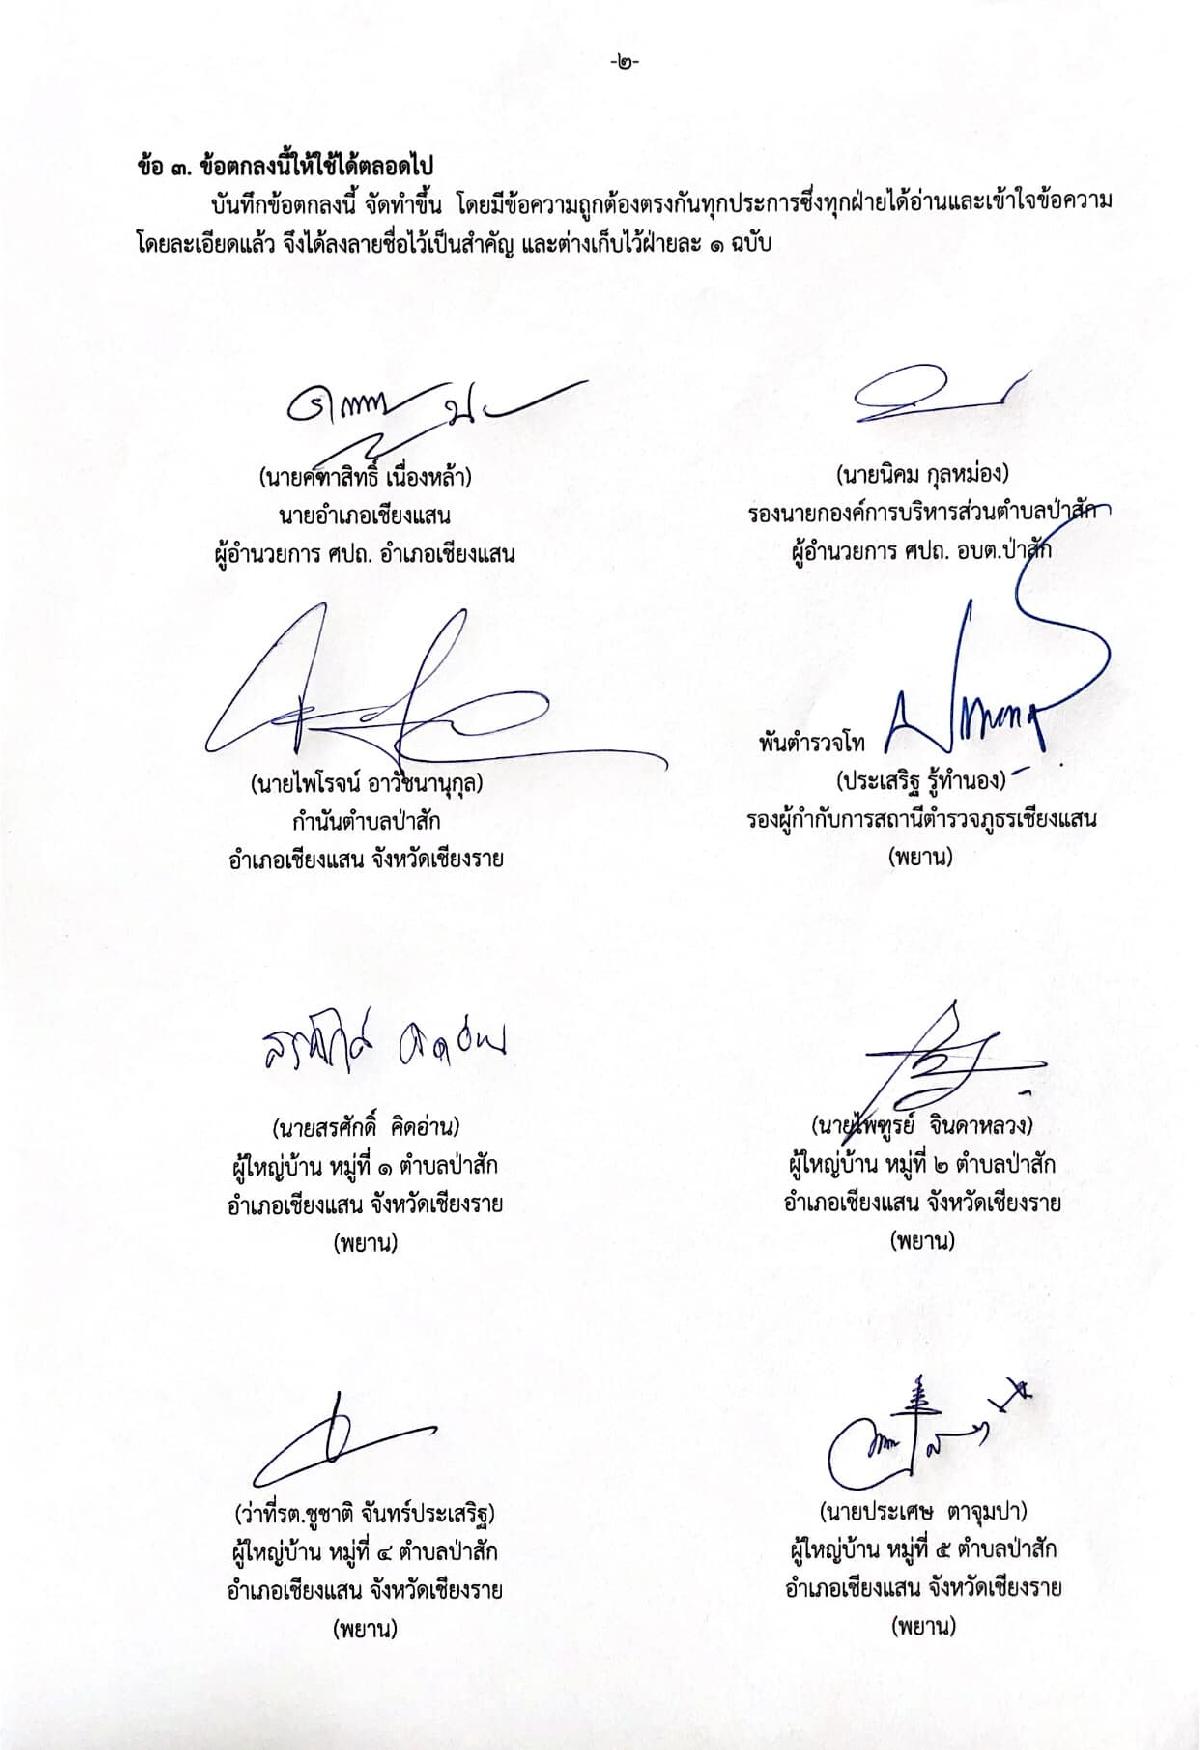 -๒-
ข้อ ๓. ข้อตกลงนี้ให้ใช้ได้ตลอดไป
บันทึกข้อตกลงนี้ จัดทำขึ้น โดยมีข้อความถูกต้องตรงกันทุกประการซึ่งทุกฝ่ายได้อ่านและเข้าใจข้อความ
โดยละเอียดแล้ว จึงได้ลงลายชื่อไว้เป็นสำคัญ และต่างเก็บไว้ฝ่ายละ ๑ ฉบับ
(นายคฑาสิทธิ์ เนื่องหล้า)
นายอำเภอเชียงแสน
ผู้อำนวยการ ศปถ. อำเภอเชียงแสน
(นายนิคม กุลหม่อง)
รองนายกองค์การบริหารส่วนตำบลป่าสัก
ผู้อำนวยการ ศปถ. อบต.ป่าสัก
(นายไพโรจน์ อาวัชนานุกุล)
กำนันตำบลป่าสัก
อำเภอเชียงแสน จังหวัดเชียงราย
พันตำรวจโท
(ประเสริฐ รู้ทำนอง)
รองผู้กำกับการสถานีตำรวจภูธรเชียงแสน
(พยาน)
สรศักดิ์ คิดอ่าน
(นายสรศักดิ์ คิดอ่าน)
ผู้ใหญ่บ้าน หมู่ที่ ๑ ตำบลป่าสัก
อำเภอเชียงแสน จังหวัดเชียงราย
(พยาน)
(นายไพฑูรย์ จินดาหลวง)
ผู้ใหญ่บ้าน หมู่ที่ ๒ ตำบลป่าสัก
อำเภอเชียงแสน จังหวัดเชียงราย
(พยาน)
(ว่าที่รต.ชูชาติ จันทร์ประเสริฐ)
ผู้ใหญ่บ้าน หมู่ที่ ๔ ตำบลป่าสัก
อำเภอเชียงแสน จังหวัดเชียงราย
(พยาน)
(นายประเศษ ตาจุมปา)
ผู้ใหญ่บ้าน หมู่ที่ ๕ ตำบลป่าสัก
อำเภอเชียงแสน จังหวัดเชียงราย
(พยาน)